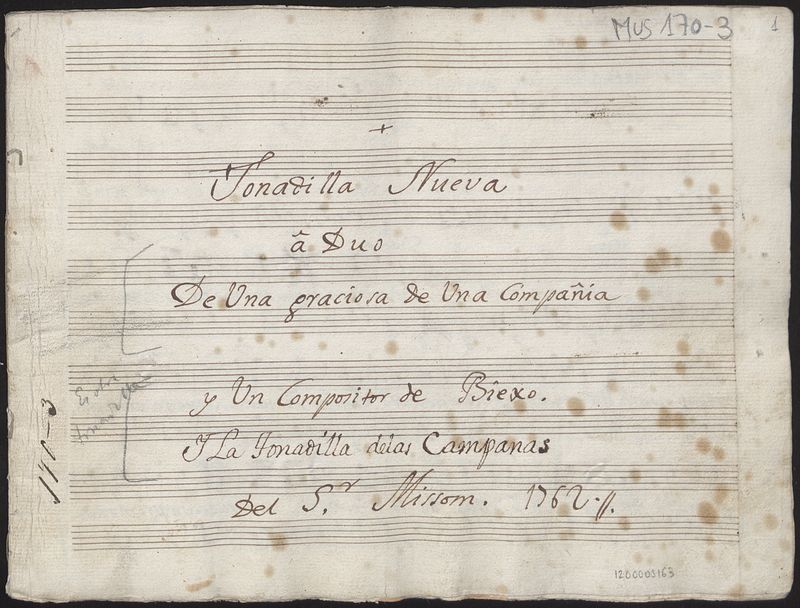 MUS 170-3
1
+
Tonadilla Nueva
â Duo
De Una graciosa de Una Compañia
y Un Compositor de Biexo.
Es otra
tonadilla
Y La Tonadilla delas Campanas
Del S.r Missom. 1762.//.
170-3
1200005163